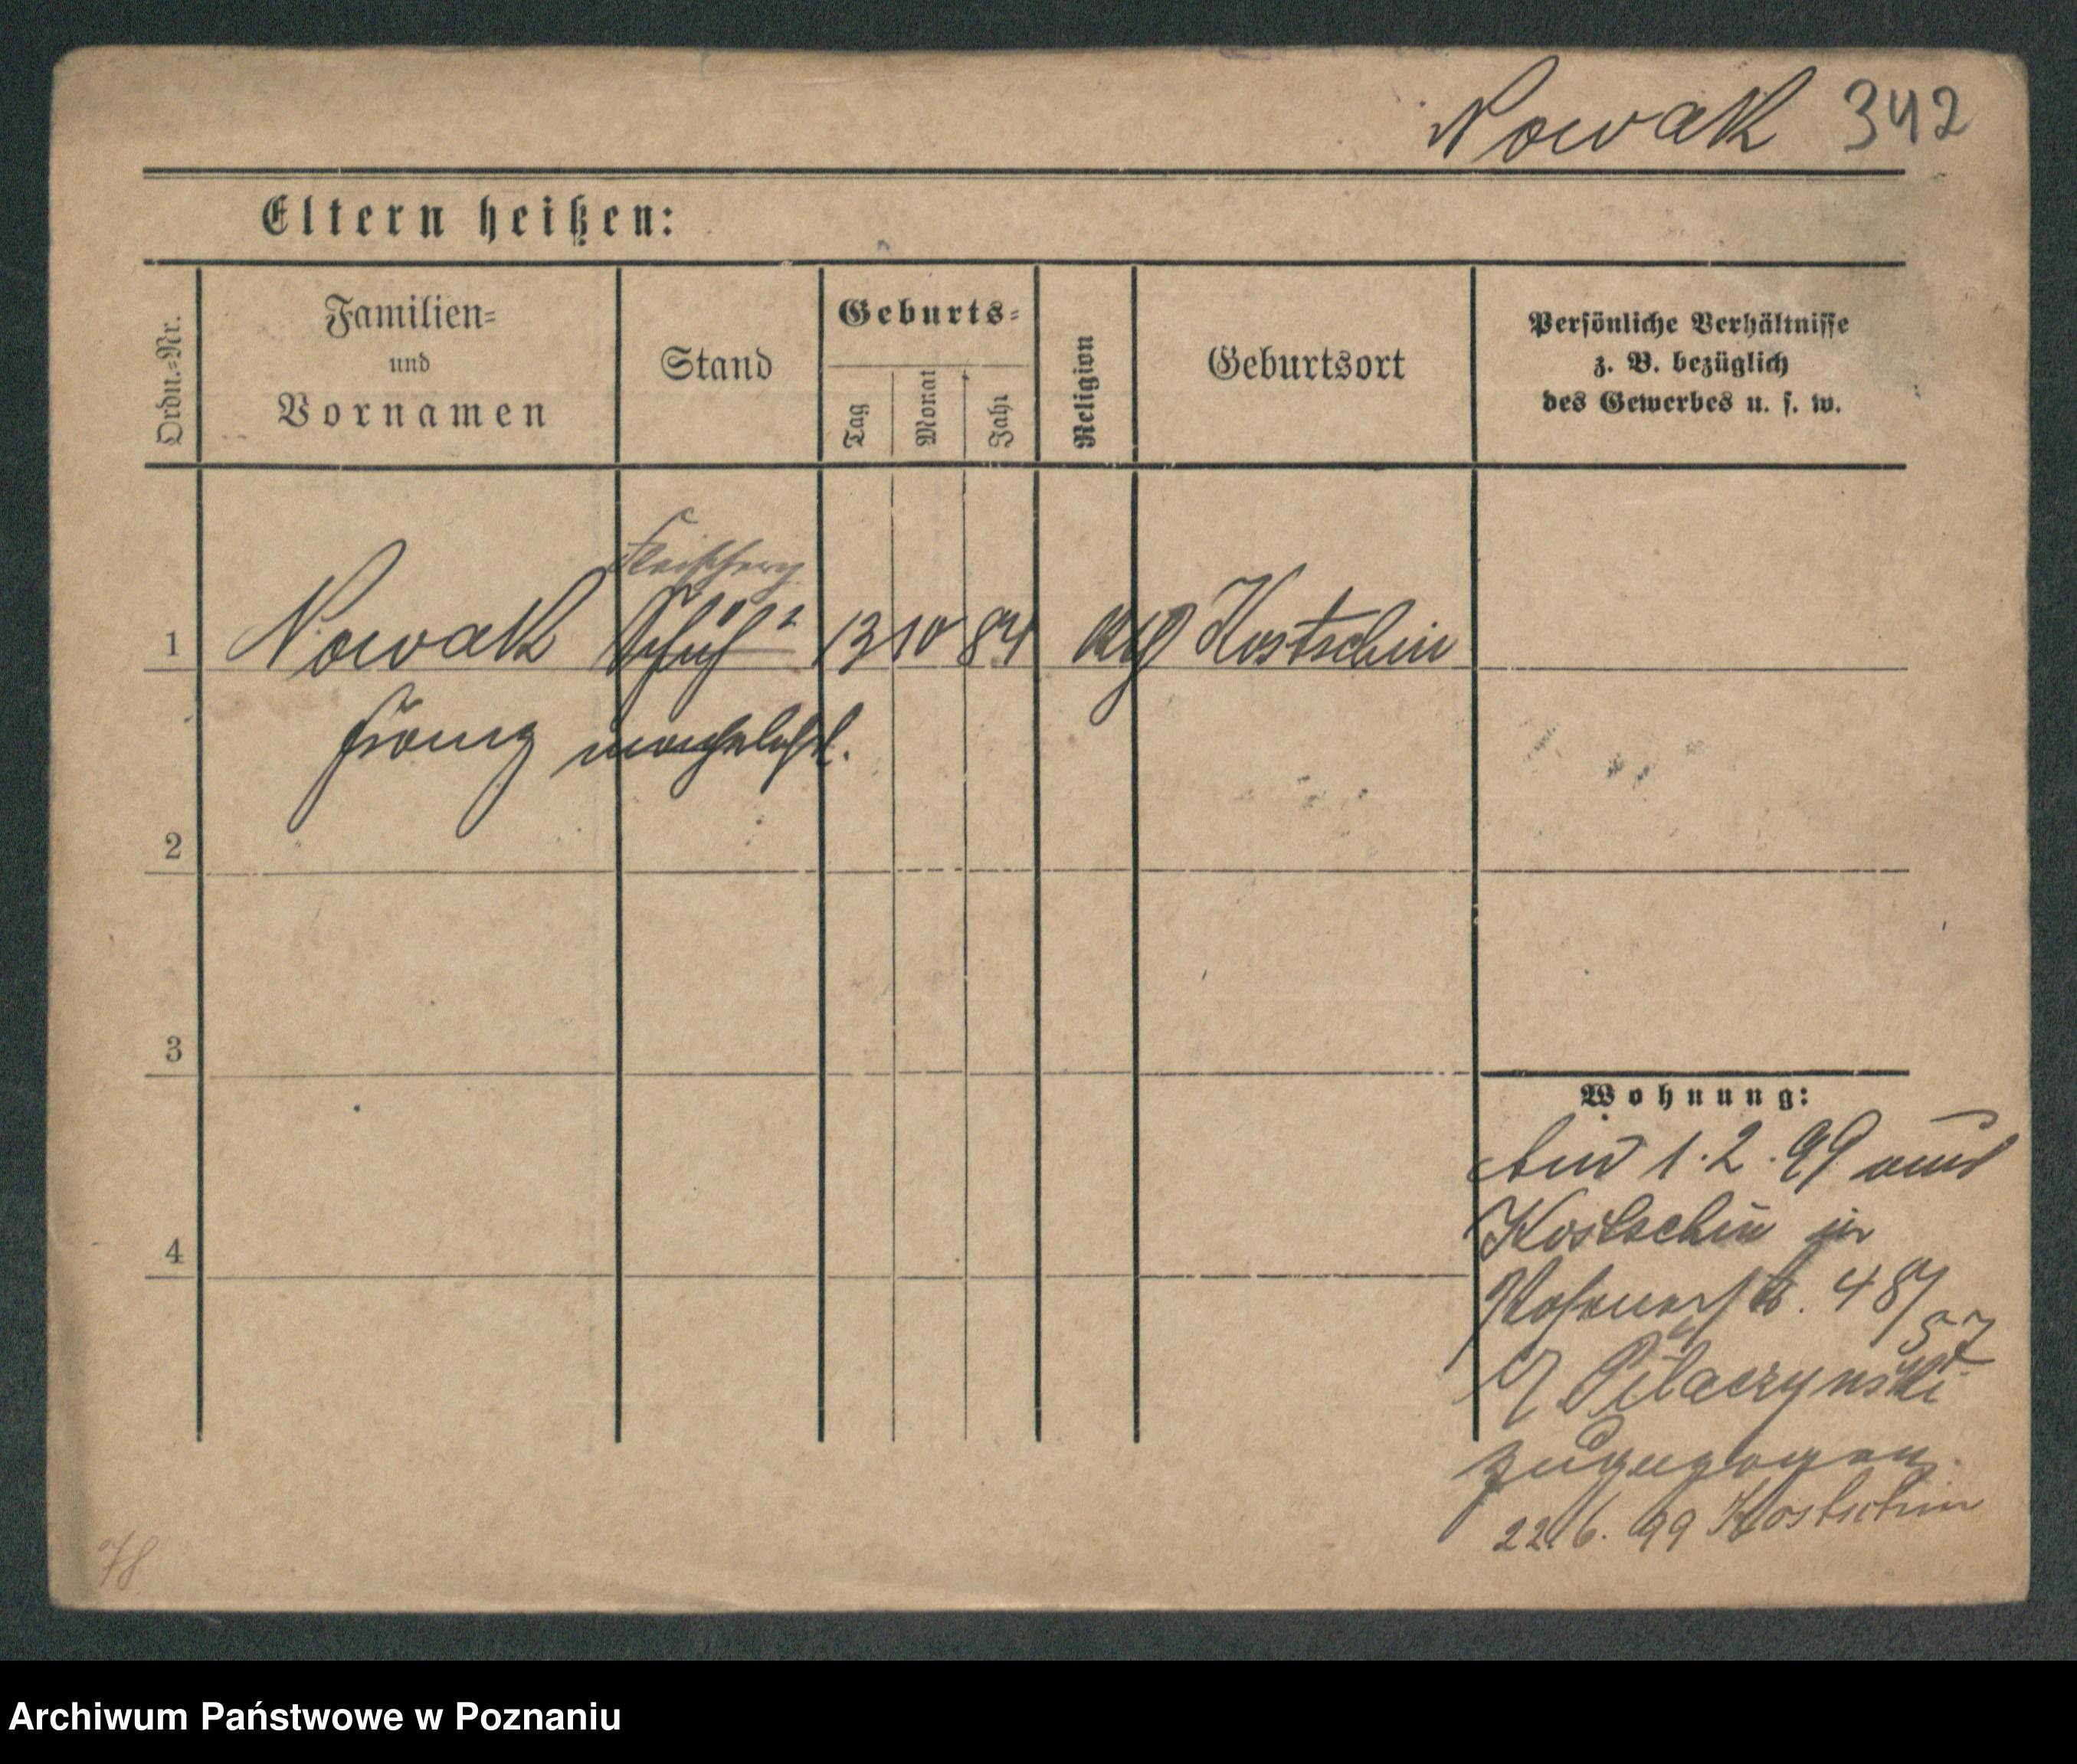 Nowak 342
Eltern heißen:
Ordn.-Nr.
Familien-
und
Vornamen
Stand
Geburts-
Tag
Monat
Jahr
Religion
Geburtsort
Persönliche Verhältnisse
z. B. bezüglich
des Gewerbes u. s. w.
1
Nowak
13 10 84
Kostschin
Franz
2
3
4
Wohnung:
1.2.99 aus
Kostschin in
48/57
zugezogen.
22.6.99 Kostschin
78
Archiwum Państwowe w Poznaniu